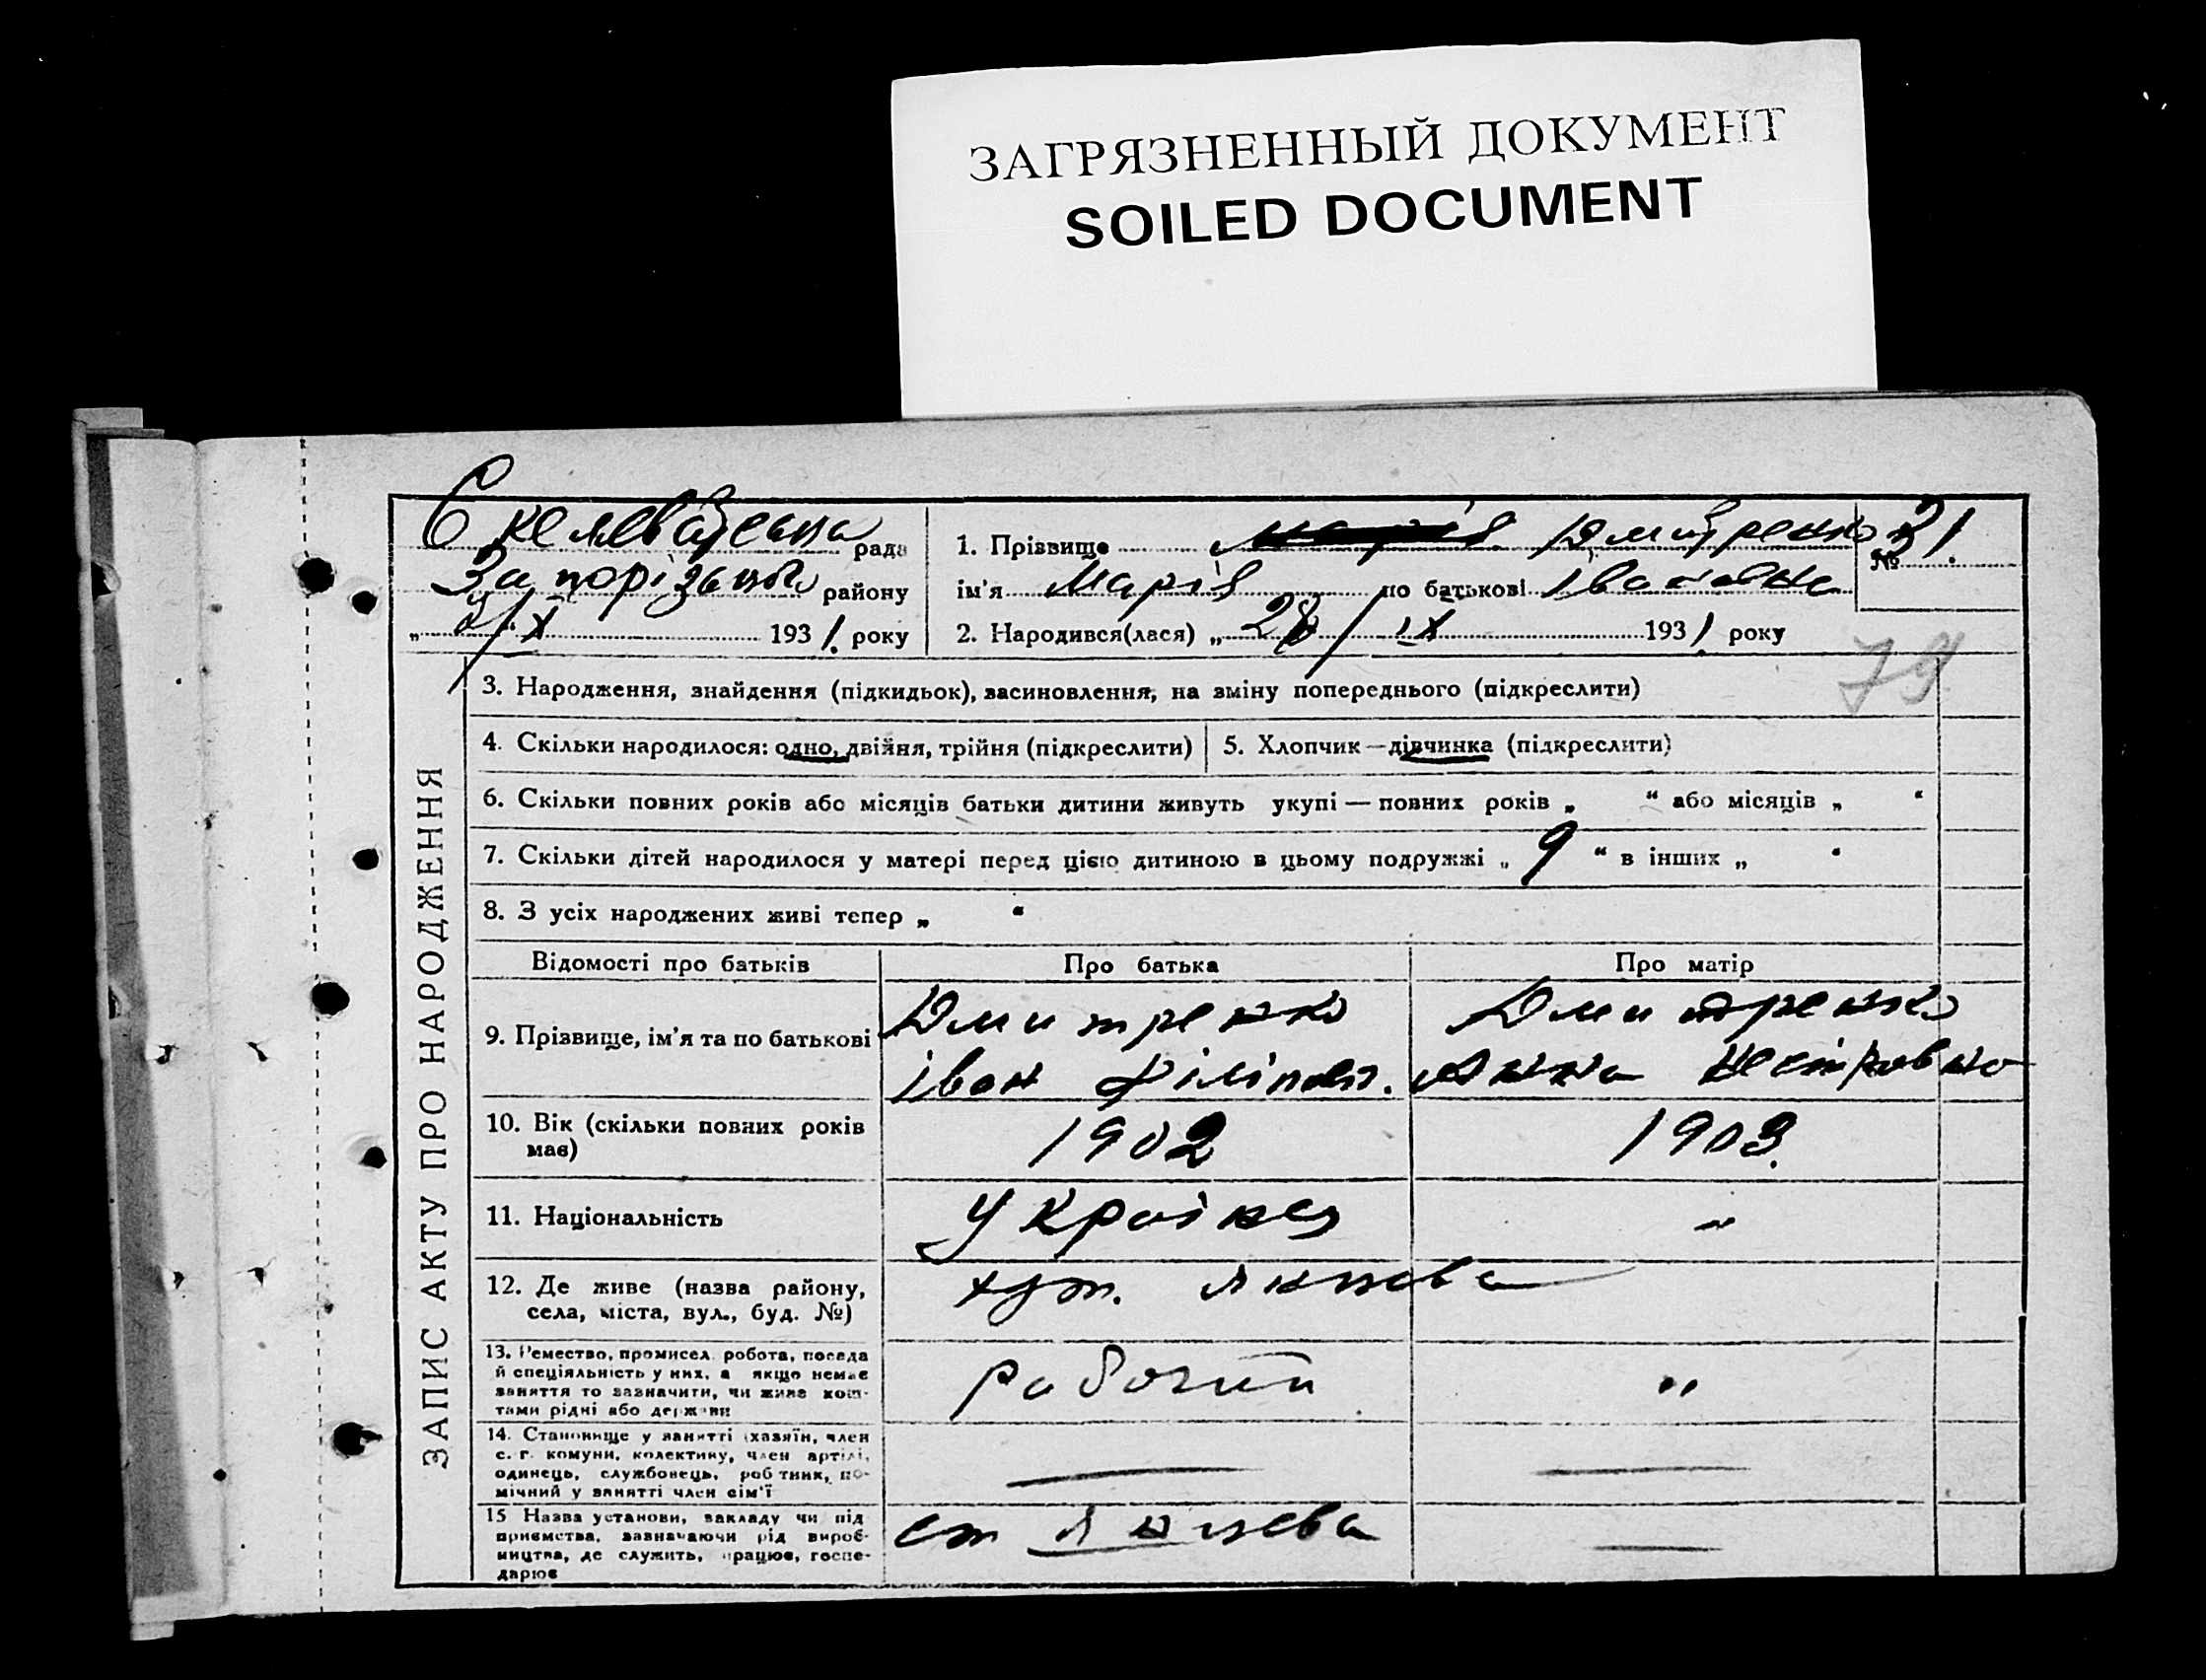 ЗАГРЯЗНЕННЫЙ ДОКУМЕНТ
SOILED DOCUMENT
рада
Запорізького району
„ 193 1. року
1. Прізвище Дмитренко
ім'я Марія по батькові Івановна
№ 31.
2. Народився(лася) „ 28/IX 1931 року
79
ЗАПИС АКТУ ПРО НАРОДЖЕННЯ
3. Народження, знайдення (підкидьок), засиновлення, на зміну попереднього (підкреслити)
4. Скільки народилося: одно, двійня, трійня (підкреслити)
5. Хлопчик—дівчинка (підкреслити)
6. Скільки повних років або місяців батьки дитини живуть укупі — повних років „ “ або місяців „ “
7. Скільки дітей народилося у матері перед цією дитиною в цьому подружжі „ 9 “ в інших „ “
8. З усіх народжених живі тепер „ “
Відомості про батьків
Про батька
Про матір
9. Прізвище, ім'я та по батькові
Дмитренко
Іван Філіпов.
Дмитренко
Анна
10. Вік (скільки повних років
має)
1902
1903.
11. Національність
Українец
„
12. Де живе (назва району,
села, міста, вул., буд. №)
хут. Янцева
13. Ремество, промисел, робота, посада
й спеціяльність у них, а якщо немає
заняття то зазначити, чи живе кош-
тами рідні або держави
рабочий
„
14. Становище у занятті (хазяїн, член
с.-г. комуни, колективу, член артілі,
одинець, службовець, робітник, по-
мічний у занятті член сім'ї
15 Назва установи, закладу чи під
приємства, зазначаючи рід вироб-
ництва, де служить, працює, госпо-
дарює
ст Янцева